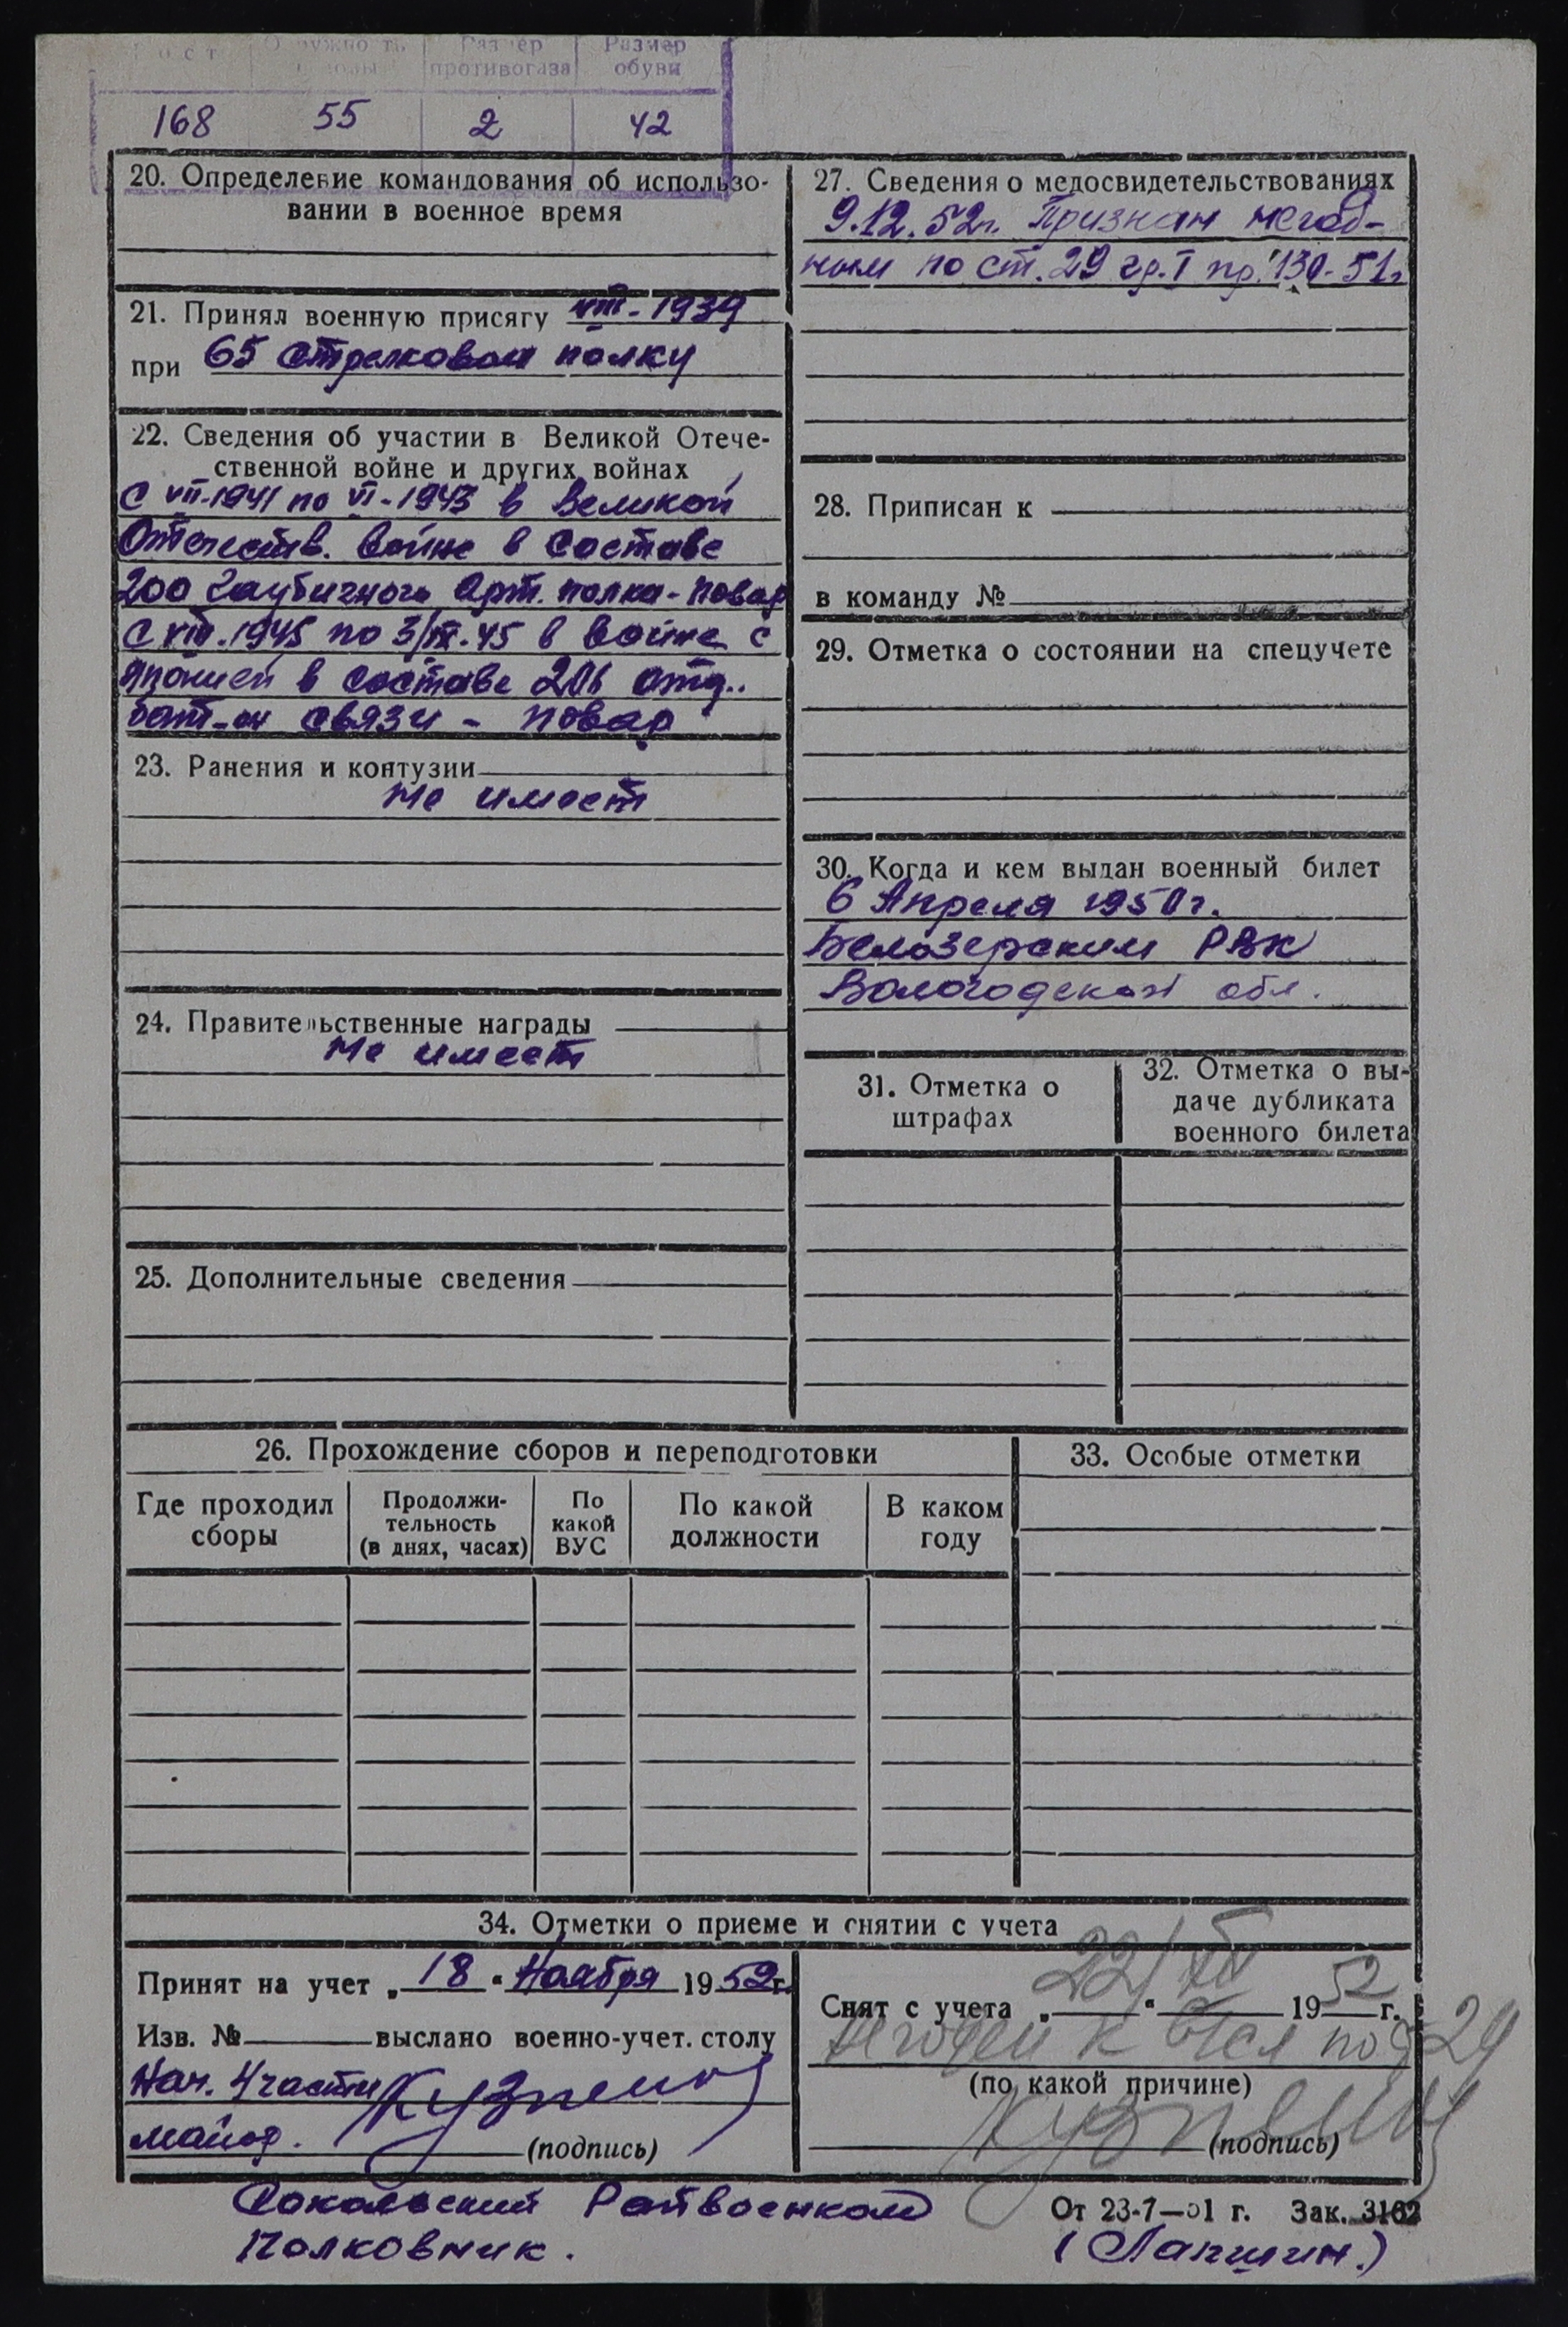 Рост Окружность головы Размер противогаза Размер обуви
168 55 2 42
20. Определение командования об использо-
вании в военное время
21. Принял военную присягу VIII-1939
при 65 стрелковом полку
22. Сведения об участии в Великой Отече-
ственной войне и других войнах
С VII-1941 по VI-1943 в Великой
Отечеств. войне в составе
200 гаубичного Арт. полка-повар
С VIII.1945 по 3/IX.45 в войне с
Японией в составе 206 отд.
бат-он связи - повар
23. Ранения и контузии
Не имеет
24. Правительственные награды
Не имеет
25. Дополнительные сведения
27. Сведения о медосвидетельствованиях
9.12.52г. Признан негод-
ным по ст. 29 гр. I пр. 130-51г
28. Приписан к
в команду №
29. Отметка о состоянии на спецучете
30. Когда и кем выдан военный билет
6 Апреля 1950г.
Белозерским РВК
Вологодской обл.
31. Отметка о
штрафах
32. Отметка о вы-
даче дубликата
военного билета
26. Прохождение сборов и переподготовки
Где проходил
сборы
Продолжи-
тельность
(в днях, часах)
По
какой
ВУС
По какой
должности
В каком
году
33. Особые отметки
34. Отметки о приеме и снятии с учета
Принят на учет „18“ Ноября 1952г.
Изв. № выслано военно-учет. столу
Нач. 4 части Кузнецов
майор. (подпись)
Снят с учета „22/XII“ 1952г.
Негоден к по 29
(по какой причине)
Кузнецов (подпись)
Сокольский Райвоенком
Полковник. (Лапшин.)
От 23-7—51 г. Зак. 3162